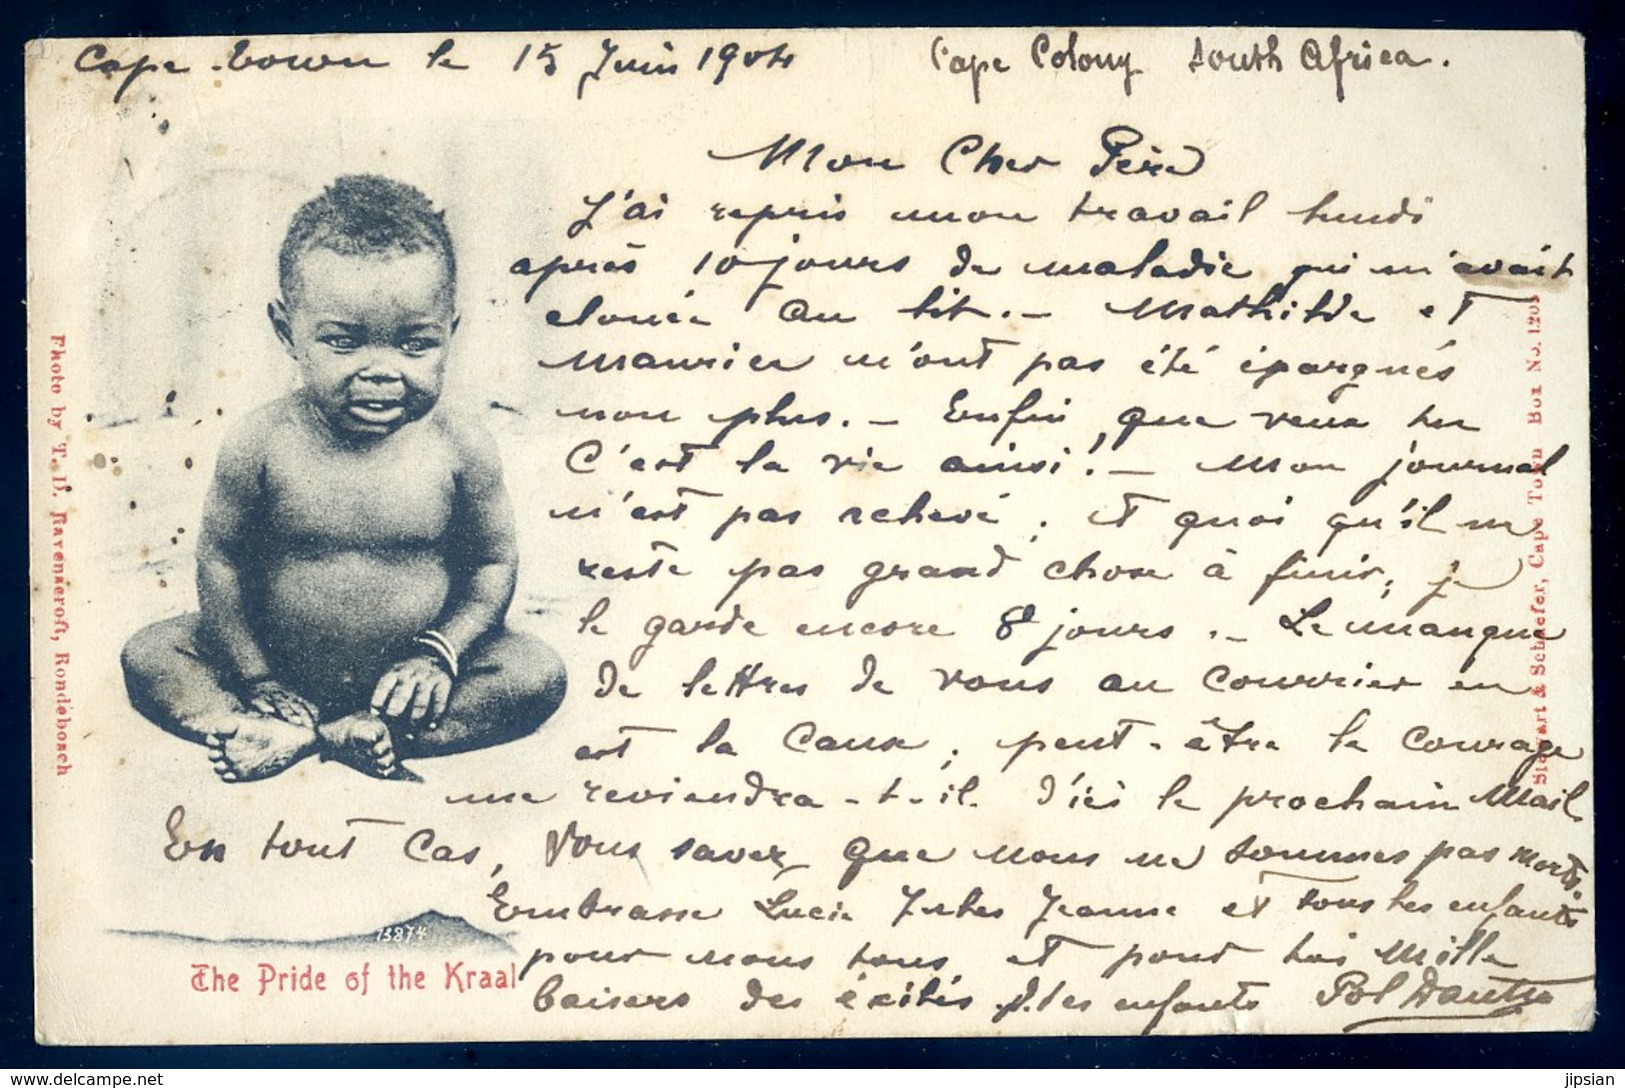 Cape Town le 15 Juin 1904 Cape Colony South Africa.
Mon Cher Père
J'ai repris mon travail lundi
après 10 jours de maladie qui m'avait
clouée au lit. — Mathilde et
Maurice n'ont pas été épargnés
non plus. — Enfin que veux tu
C'est la vie ainsi! — Mon journal
n'est pas achevé, et quoi qu'il ne
reste pas grand chose à finir, je
le garde encore 8 jours. — Le manque
de lettres de vous au Courrier en
est la Cause, peut-être le Courage
me reviendra-t-il d'ici le prochain Mail.
En tout Cas, Vous savez que nous ne sommes pas morts.
Embrasse Lucie Jules Jeanne et tous les enfants
pour nous tous et pour toi Mille
baisers des éxilés & des enfants Pol
The Pride of the Kraal
13874
Photo by T. D. Ravenscroft, Rondebosch
Schaefer, Cape Town Box No.
jipsian